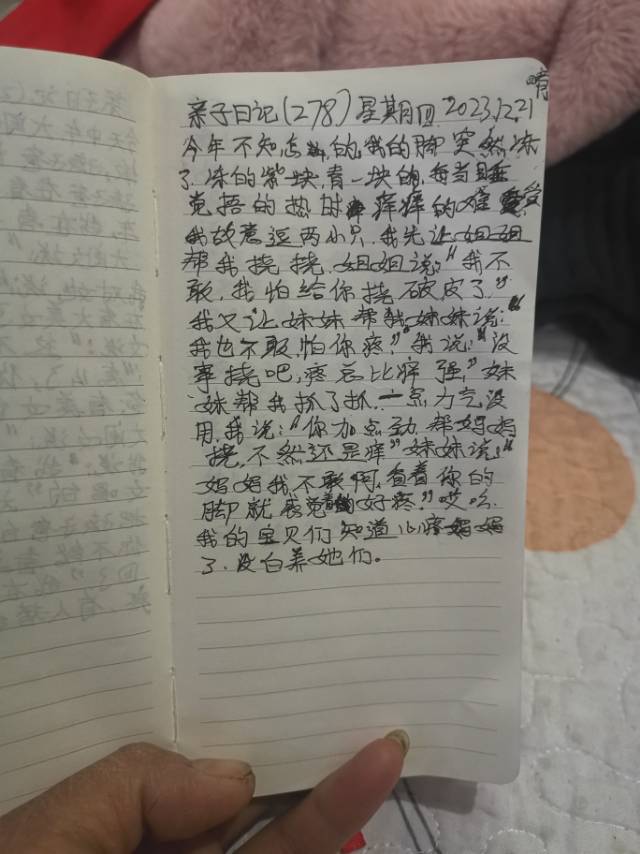 亲子日记(278)星期四 2023.12.21 晴
今年不知怎么的,我的脚突然冻
了.冻的紫一块,青一块的,每当睡
觉捂的热时痒痒的难受
我故意逗两小只.我先让姐姐
帮我挠挠,姐姐说:"我不
敢,我怕给你挠破皮了"
我又让妹妹帮我.妹妹说:"
我也不敢,怕你疼"我说:"没
事挠吧,疼总比痒强,"妹
妹帮我抓了抓.一点力气没
用,我说:"你加点劲,帮妈妈
挠,不然还是痒"妹妹说:"
妈妈我不敢啊,看着你的
脚就感觉好疼."哎哈.
我的宝贝们知道心疼妈妈
了.没白养她们。